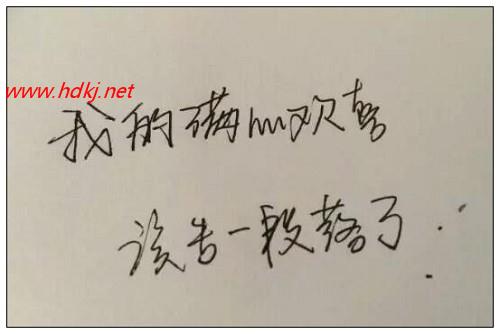 www.hdkj.net
我的满心欢喜
该告一段落了...